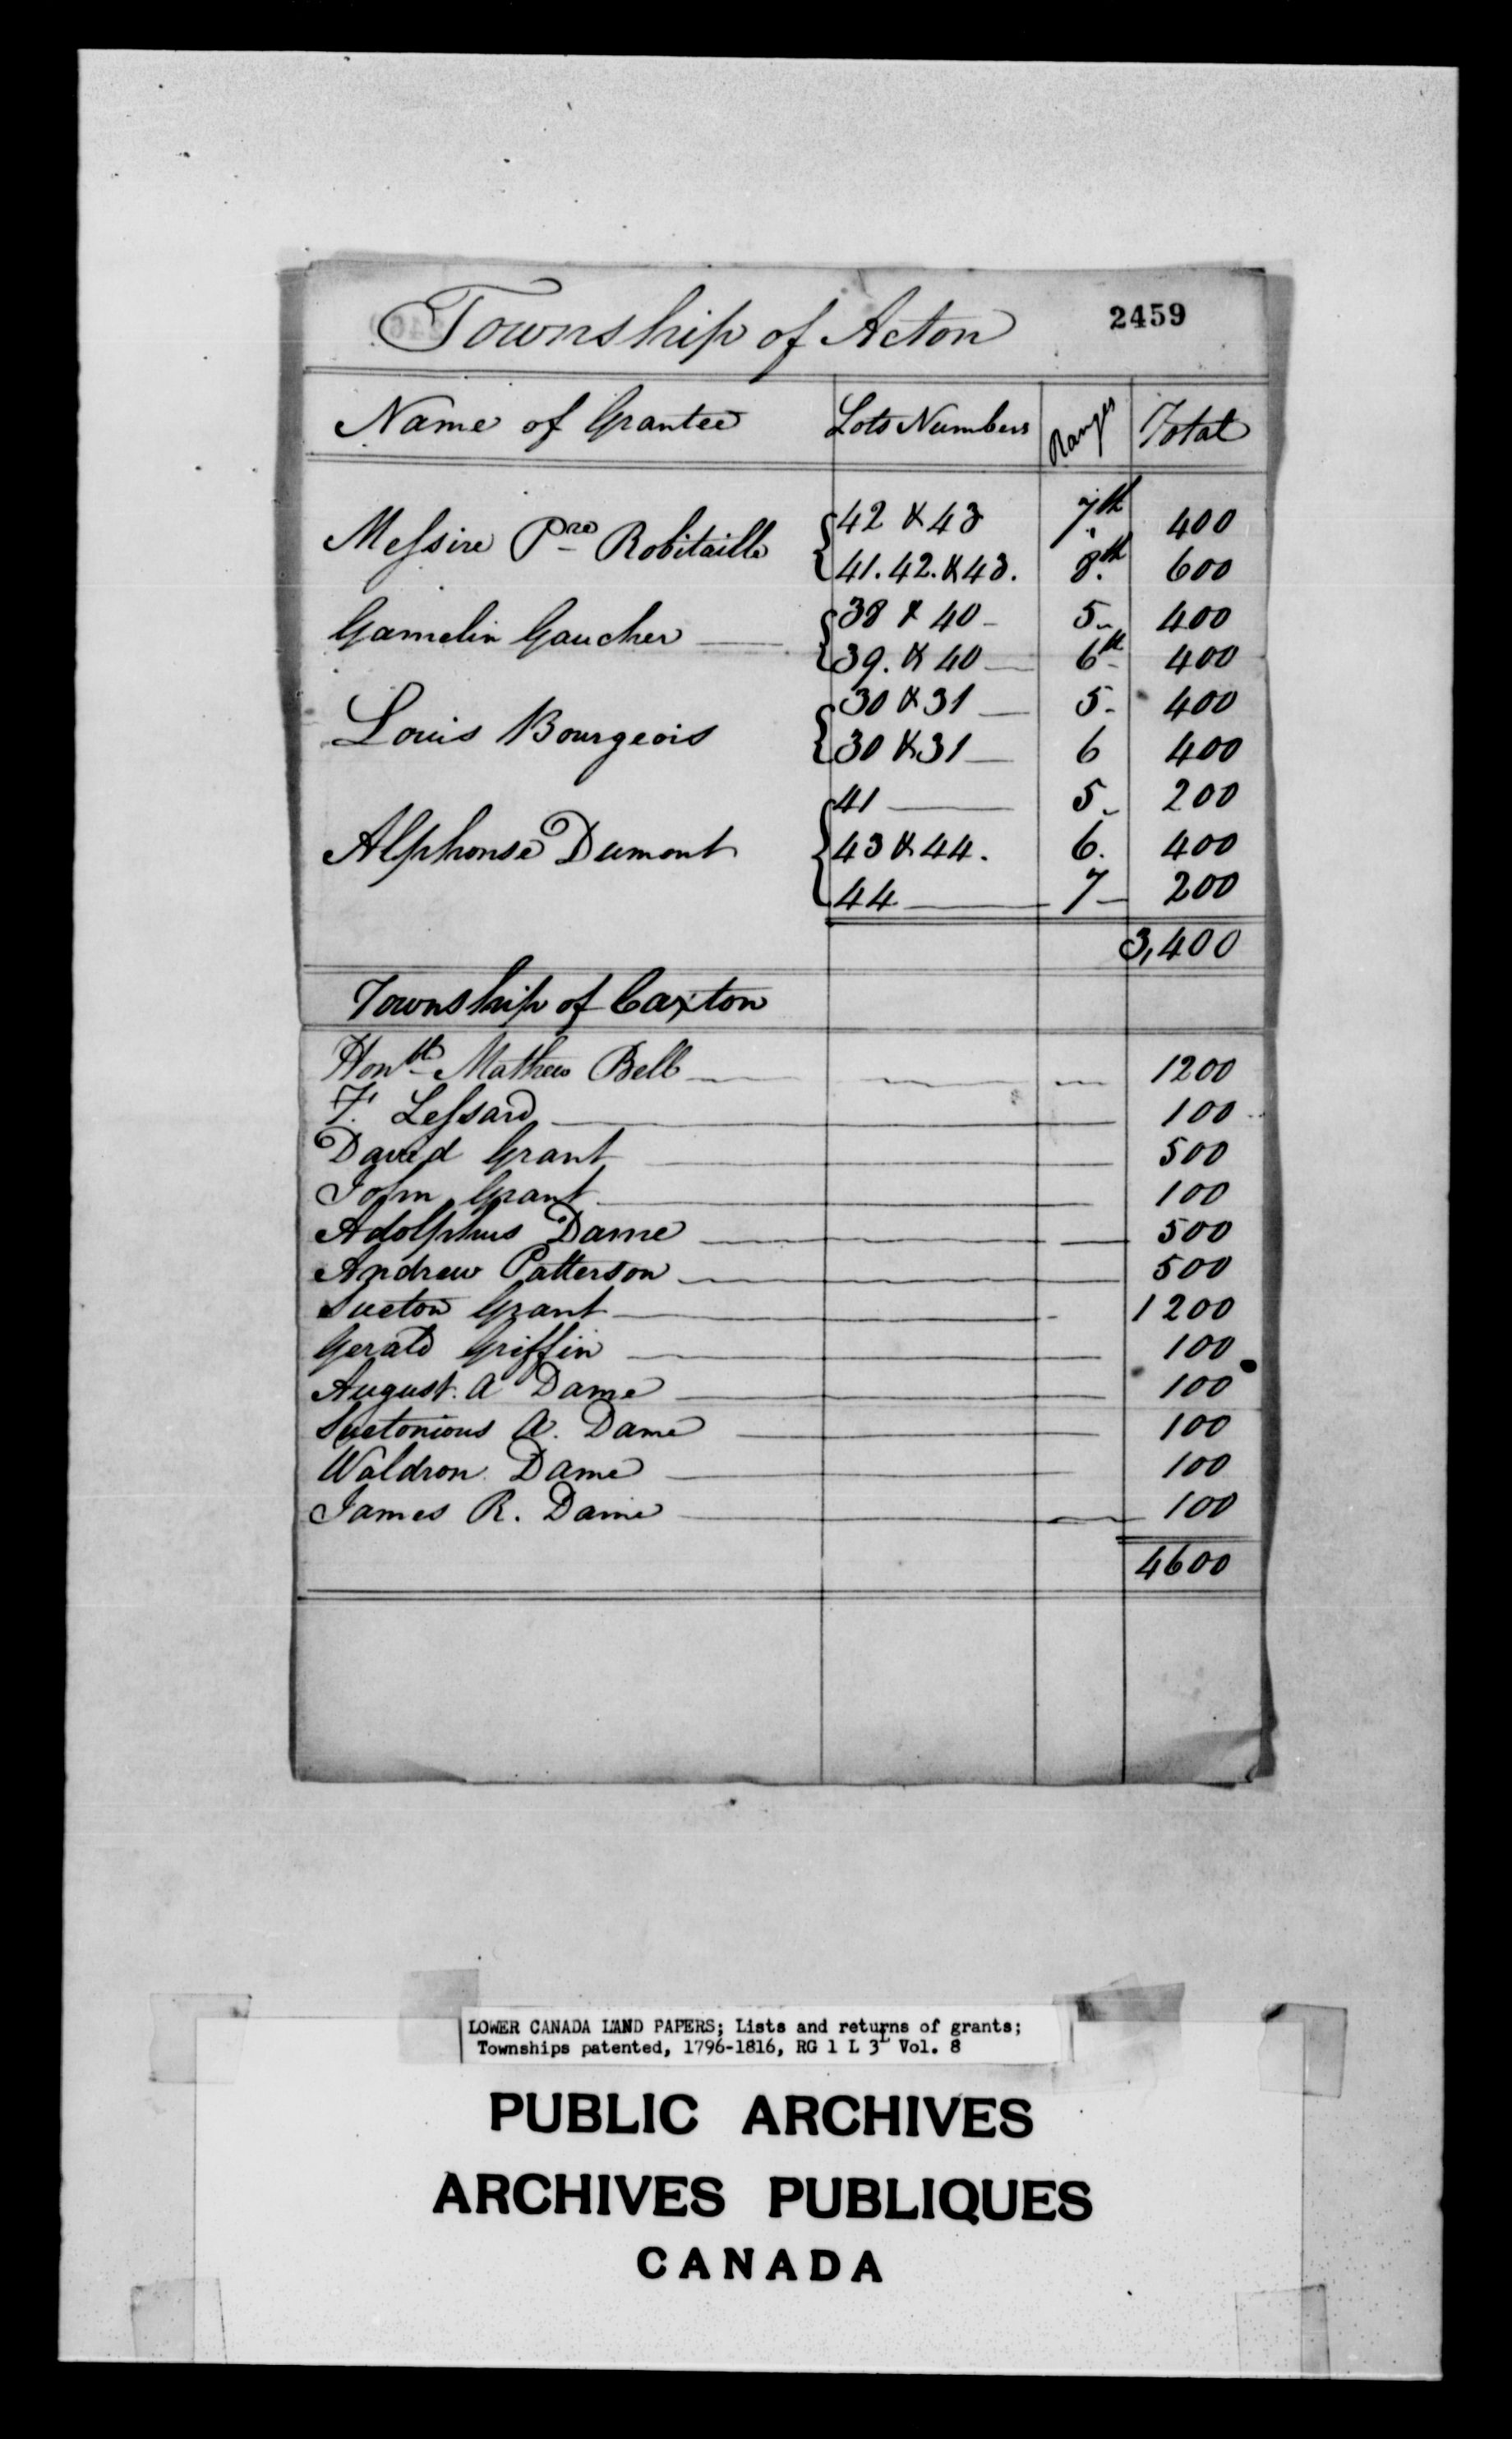 Township of Acton 2459
Name of Grantee Lots Numbers Ranges Total
Messire Pre Robitaille 42 & 43 7th 400
41. 42. & 43. 8th 600
Gamelin Gaucher 38 & 40 5 400
39. & 40 6th 400
Louis Bourgeois 30 & 31 5 400
30 & 31 6 400
41 5 200
Alphonse Dumont 43 & 44. 6. 400
44 7 200
3,400
Township of Caxton
Honble Mathew Bell 1200
F. Lessard 100
David Grant 500
John Grant 100
Adolphus Dame 500
Andrew Patterson 500
Sueton Grant 1200
Gerald Griffin 100
August. A Dame 100
Suetonious A. Dame 100
Waldron Dame 100
James R. Dame 100
4600
LOWER CANADA LAND PAPERS; Lists and returns of grants;
Townships patented, 1796-1816, RG 1 L 3L Vol. 8
PUBLIC ARCHIVES
ARCHIVES PUBLIQUES
CANADA